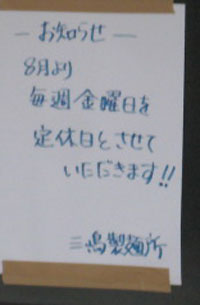 ―お知らせ―
8月より
毎週金曜日を
定休日とさせて
いただきます!!
三嶋製麺所